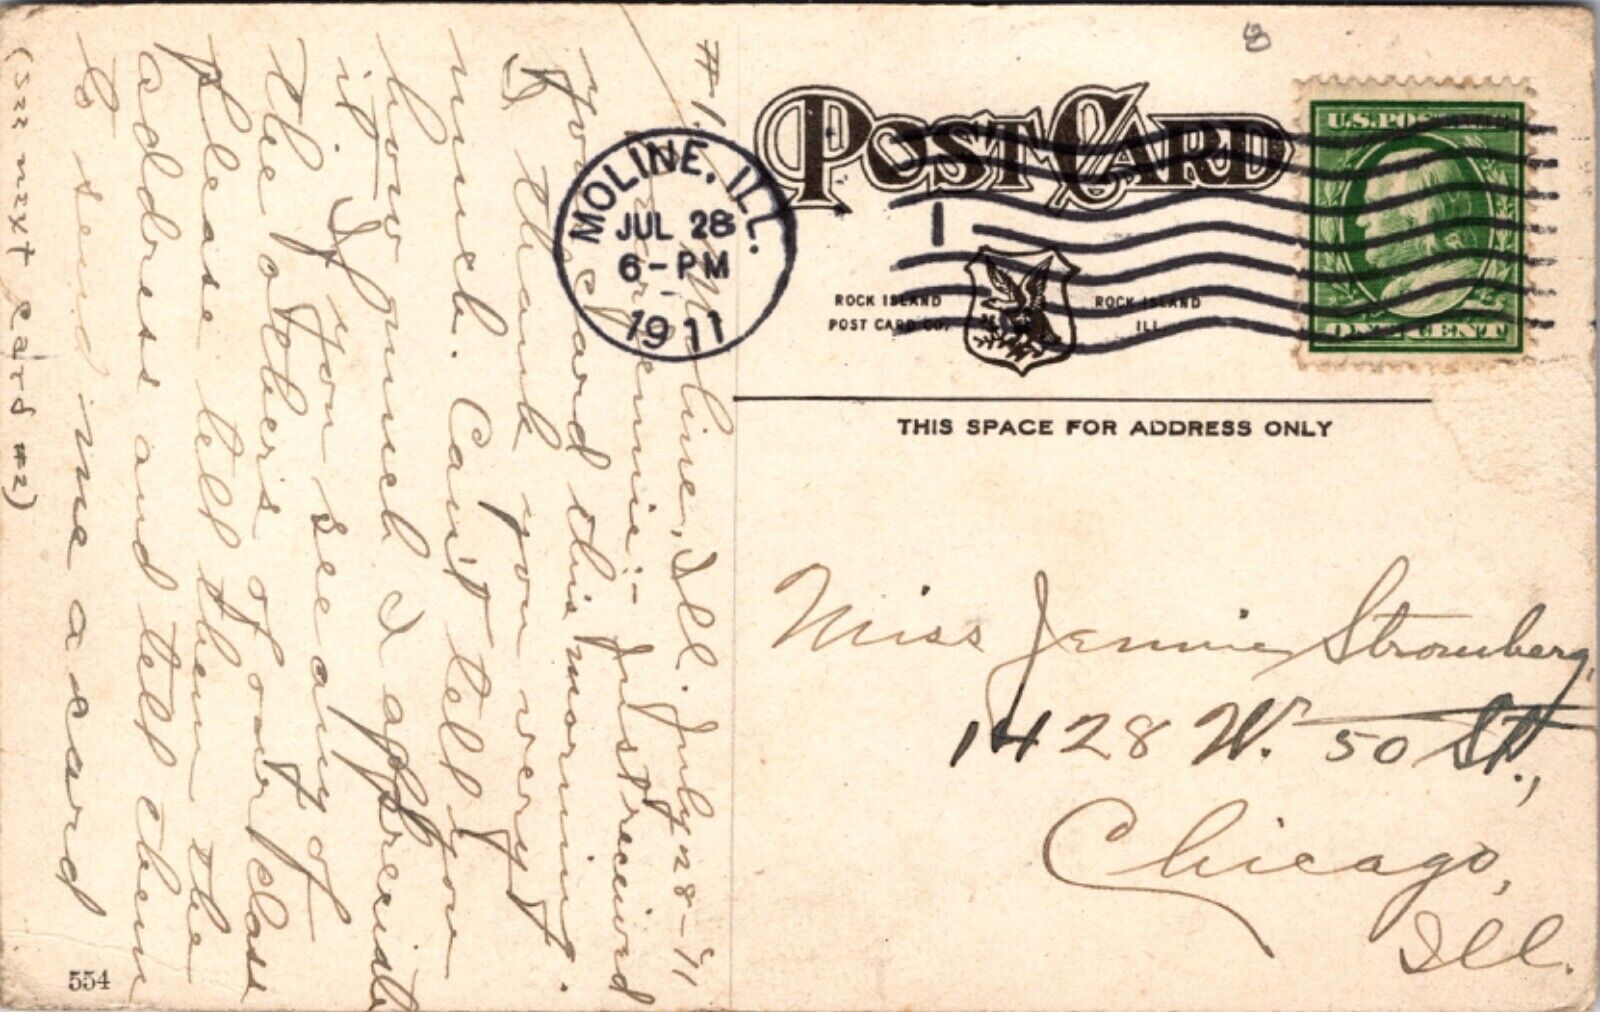 #1. Moline, Ill. July 28-'11
Dear Jennie:- Just received
your card this morning.
I thank you very
much. Can't tell you
how much I appreciate
it. If you see any of
the others of our class
please tell them the
address and tell them
to send me a card
(See next card #2)
554
POST CARD
MOLINE, ILL.
JUL 28
6-PM
1911
1
U.S. POSTAGE
ONE CENT
ROCK ISLAND
POST CARD CO.
ROCK ISLAND
ILL.
THIS SPACE FOR ADDRESS ONLY
Miss Jennie Stromberg,
1428 W. 50 St.,
Chicago,
Ill.